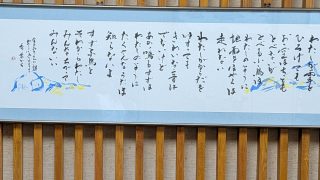 わたしが両手を
ひろげても
お空はちっとも
とべないが
とべる小鳥は
わたしのように
地面をはやくは
走れない
わたしがからだを
ゆすっても
きれいな音は
でないけど
あの鳴るすずは
わたしのように
たくさんなうたは
知らないよ
すずと小鳥と
それからわたし
みんなちがって
みんないい